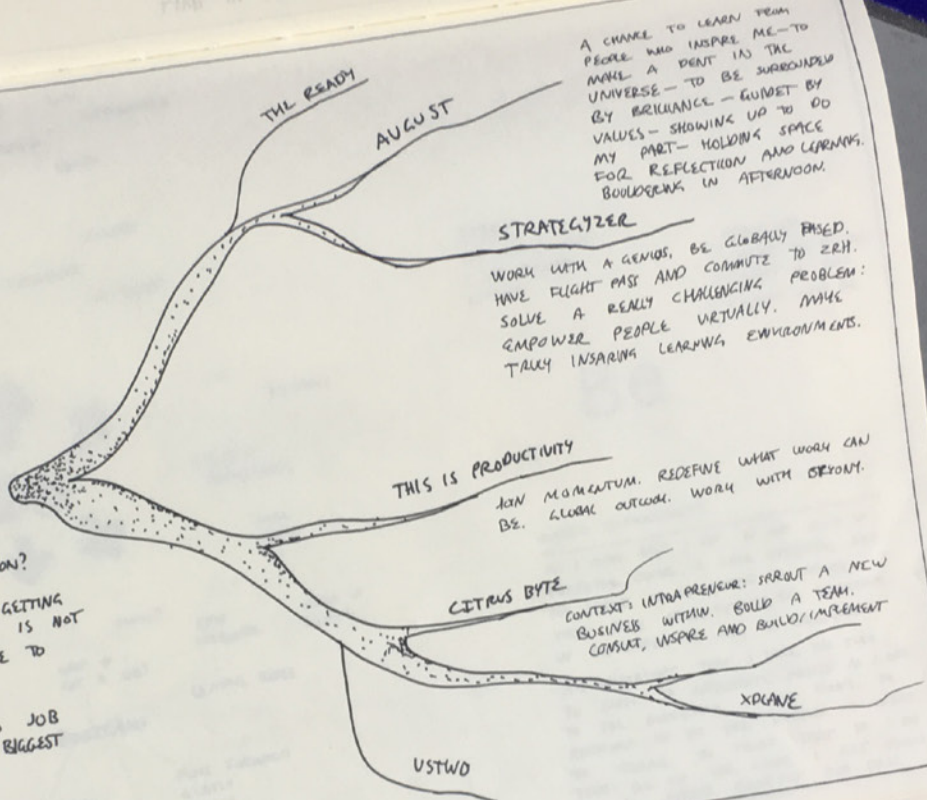 THE READY
AUGUST
A CHANCE TO LEARN FROM
PEOPLE WHO INSPIRE ME—TO
MAKE A DENT IN THE
UNIVERSE—TO BE SURROUNDED
BY BRILLIANCE—GUIDET BY
VALUES—SHOWING UP TO DO
MY PART—HOLDING SPACE
FOR REFLECTION AND LEARNING.
BOULDERING IN AFTERNOON.
STRATEGYZER
WORK WITH A GENIUS, BE GLOBALLY BASED.
HAVE FLIGHT PASS AND COMMUTE TO ZRH.
SOLVE A REALLY CHALLENGING PROBLEM:
EMPOWER PEOPLE VIRTUALLY. MAKE
TRULY INSPIRING LEARNING ENVIRONMENTS.
THIS IS PRODUCTIVITY
MOMENTUM. REDEFINE WHAT WORK CAN
BE. GLOBAL OUTLOOK. WORK WITH BRYONY.
CITRUS BYTE
CONTEXT: INTRAPRENEUR: SPROUT A NEW
BUSINESS WITHIN. BUILD A TEAM.
CONSULT, INSPIRE AND BUILD/IMPLEMENT
XPLANE
USTWO
ON?
GETTING
IS NOT
E TO
JOB
BIGGEST